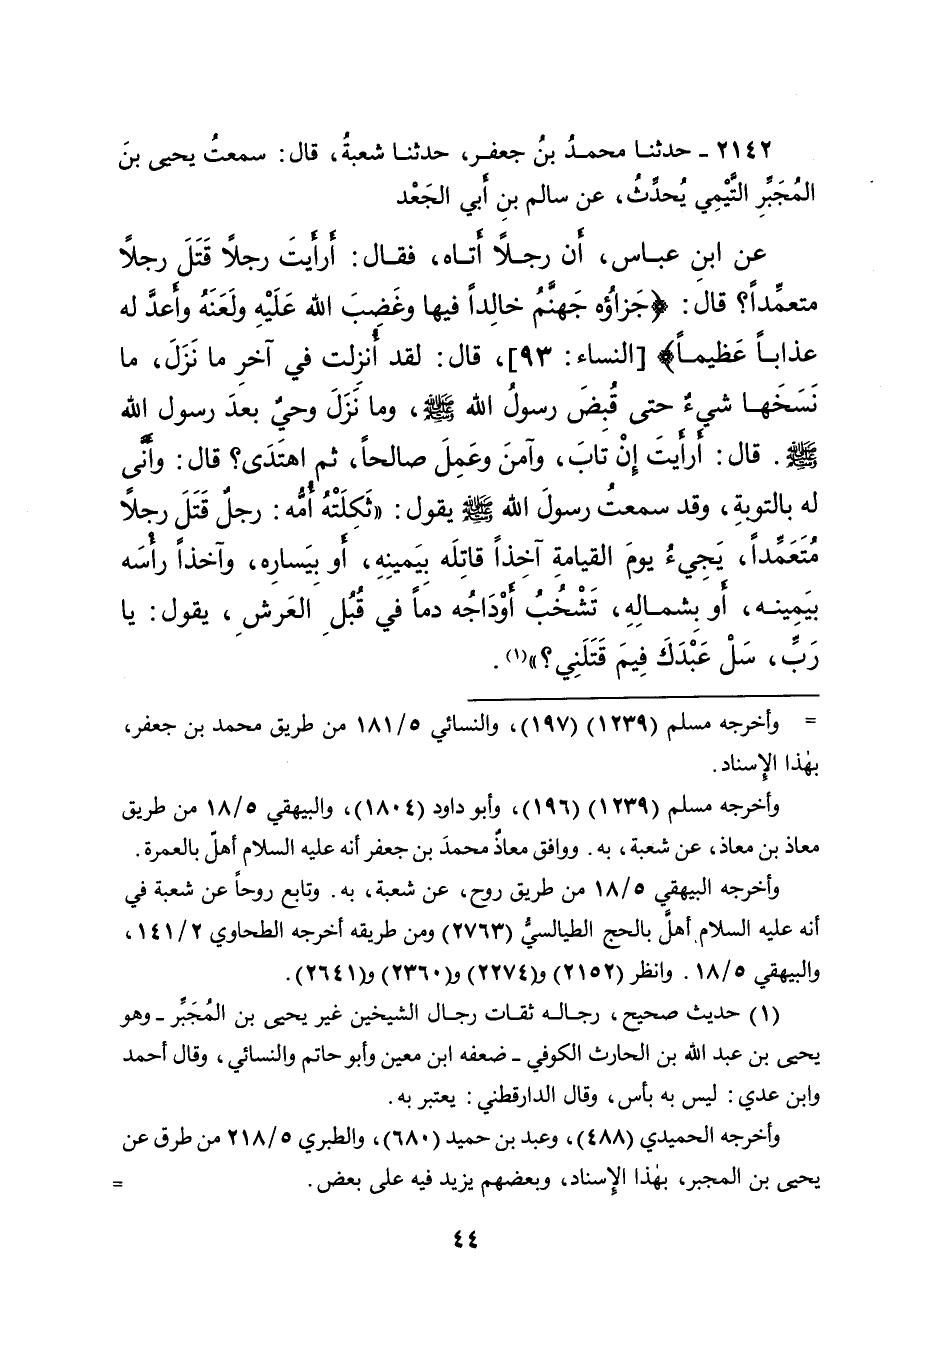 ٢١٤٢ ـ حدثنـا محمـدُ بنُ جعفـرٍ، حدثنـا شعبةُ، قال: سمعتُ يحيى بنَ
المُجَبِّرِ التَّيْمِي يُحدِّثُ، عن سالم بن أَبي الجَعْد
عن ابنِ عبـاس، أَن رجـلاً أَتـاه، فقـال: أَرأَيتَ رجلاً قَتَلَ رجلاً
متعمِّداً؟ قال: ﴿جَزاؤُه جَهنَّمُ خالِداً فيها وغَضِبَ الله عَلَيْهِ ولَعَنَهُ وأَعدَّ له
عذابـاً عَظيمـاً﴾ [النساء: ٩٣]، قال: لقد أُنزِلت في آخرِ ما نَزَلَ، ما
نَسَخَهـا شيءٌ حتى قُبِضَ رسولُ الله ﷺ، وما نَزَلَ وحيٌ بعدَ رسول الله
ﷺ. قال: أَرأَيتَ إِنْ تابَ، وآمنَ وعَمِلَ صالحاً، ثم اهتَدَى؟ قال: وأَنَّى
له بالتوبةِ، وقد سمعتُ رسولَ الله ﷺ يقول: «ثَكِلَتْهُ أُمُّه: رجلٌ قَتَلَ رجلاً
مُتَعَمِّداً، يَجيءُ يومَ القيامةِ آخِذاً قاتِلَه بيَمينِهِ، أَو بيَسارِه، وآخذاً رأْسَه
بيَمِينـه، أَو بشمـالِهِ، تَشْخُبُ أَوْدَاجُه دماً في قُبُلِ العَرشِ، يقول: يا
رَبِّ، سَلْ عَبْدَكَ فِيمَ قَتَلَني؟»(١).
= وأخرجه مسلم (١٢٣٩) (١٩٧)، والنسائي ١٨١/٥ من طريق محمد بن جعفر،
بهٰذا الإسناد.
وأخرجه مسلم (١٢٣٩) (١٩٦)، وأبو داود (١٨٠٤)، والبيهقي ١٨/٥ من طريق
معاذ بن معاذ، عن شعبة، به. ووافق معاذٌ محمدَ بن جعفر أنه عليه السلام أهلّ بالعمرة.
وأخرجه البيهقي ١٨/٥ من طريق روح، عن شعبة، به. وتابع روحاً عن شعبة في
أنه عليه السلام أهلَّ بالحج الطيالسيُّ (٢٧٦٣) ومن طريقه أخرجه الطحاوي ١٤١/٢،
والبيهقي ١٨/٥. وانظر (٢١٥٢) و(٢٢٧٤) و(٢٣٦٠) و(٢٦٤١).
(١) حديث صحيح، رجـالـه ثقـات رجـال الشيخين غير يحيى بن المُجَبِّر ـ وهو
يحيى بن عبد الله بن الحارث الكوفي ـ ضعفه ابن معين وأبو حاتم والنسائي، وقال أحمد
وابن عدي: ليس به بأس، وقال الدارقطني: يعتبر به.
وأخرجه الحميدي (٤٨٨)، وعبد بن حميد (٦٨٠)، والطبري ٢١٨/٥ من طرق عن
يحيى بن المجبر، بهٰذا الإسناد، وبعضهم يزيد فيه على بعض. =
٤٤